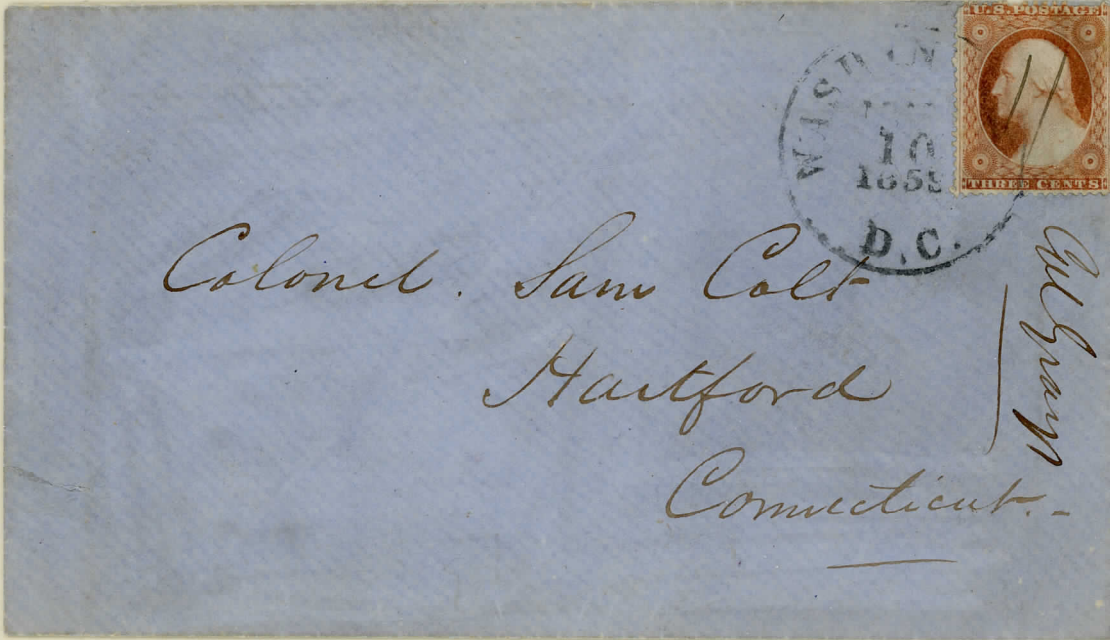 U.S. POSTAGE
THREE CENTS
WASHIN
10
1859
D.C.
Colonel. Sam Colt
Hartford
Connecticut.-